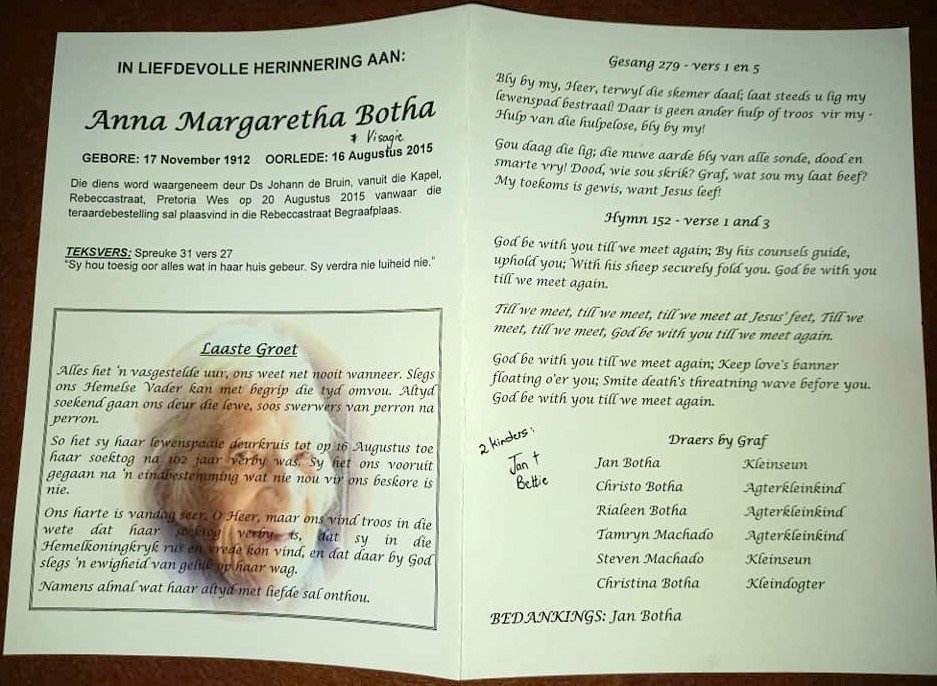 IN LIEFDEVOLLE HERINNERING AAN:
Anna Margaretha Botha
* Visagie
GEBORE: 17 November 1912 OORLEDE: 16 Augustus 2015
Die diens word waargeneem deur Ds Johann de Bruin, vanuit die Kapel,
Rebeccastraat, Pretoria Wes op 20 Augustus 2015 vanwaar die
teraardebestelling sal plaasvind in die Rebeccastraat Begraafplaas.
TEKSVERS: Spreuke 31 vers 27
"Sy hou toesig oor alles wat in haar huis gebeur. Sy verdra nie luiheid nie."
Laaste Groet
Alles het 'n vasgestelde uur, ons weet net nooit wanneer. Slegs
ons Hemelse Vader kan met begrip die tyd omvou. Altyd
soekend gaan ons deur die lewe, soos swerwers van perron na
perron.
So het sy haar lewenspaaie deurkruis tot op 16 Augustus toe
haar soektog na 102 jaar verby was. Sy het ons vooruit
gegaan na 'n eindbestemming wat nie nou vir ons beskore is
nie.
Ons harte is vandag seer, O Heer, maar ons vind troos in die
wete dat haar soektog verby is, dat sy in die
Hemelkoningkryk rus en vrede kon vind, en dat daar by God
slegs 'n ewigheid van geluk op haar wag.
Namens almal wat haar altyd met liefde sal onthou.
Gesang 279 - vers 1 en 5
Bly by my, Heer, terwyl die skemer daal; laat steeds u lig my
lewenspad bestraal! Daar is geen ander hulp of troos vir my -
Hulp van die hulpelose, bly by my!
Gou daag die lig; die nuwe aarde bly van alle sonde, dood en
smarte vry! Dood, wie sou skrik? Graf, wat sou my laat beef?
My toekoms is gewis, want Jesus leef!
Hymn 152 - verse 1 and 3
God be with you till we meet again; By his counsels guide,
uphold you; With his sheep securely fold you. God be with you
till we meet again.
Till we meet, till we meet, till we meet at Jesus' feet, Till we
meet, till we meet, God be with you till we meet again.
God be with you till we meet again; Keep love's banner
floating o'er you; Smite death's threatning wave before you.
God be with you till we meet again.
2 kinders:
Jan +
Bettie
Draers by Graf
Jan Botha Kleinseun
Christo Botha Agterkleinkind
Rialeen Botha Agterkleinkind
Tamryn Machado Agterkleinkind
Steven Machado Kleinseun
Christina Botha Kleindogter
BEDANKINGS: Jan Botha